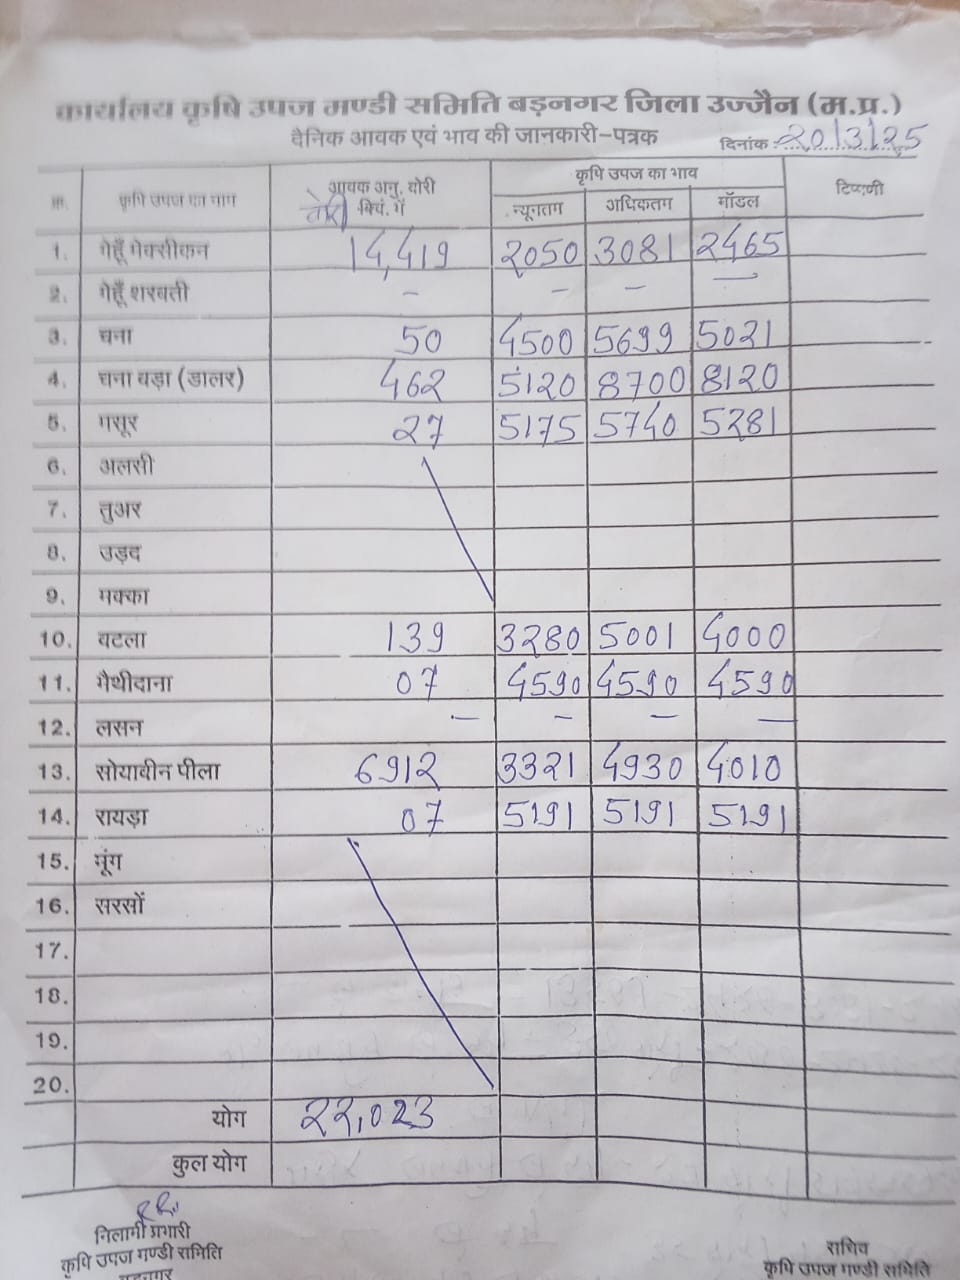 कार्यालय कृषि उपज मण्डी समिति बड़नगर जिला उज्जैन (म.प्र.)
दैनिक आवक एवं भाव की जानकारी-पत्रक
दिनांक : 20/3/25
क्र. कृषि उपज का नाम आवक अनु. योरी बोरी क्विं. में कृषि उपज का भाव टिप्पणी
न्यूनतम अधिकतम मॉडल
1. गेहूँ मेक्सीकन 14,419 2050 3081 2465
2. गेहूँ शरबती - - - -
3. चना 50 4500 5699 5021
4. चना बड़ा (डालर) 462 5120 8700 8120
5. मसूर 27 5175 5740 5281
6. अलसी
7. तुअर
8. उड़द
9. मक्का
10. बटला 139 3280 5001 4000
11. मैथीदाना 07 4590 4590 4590
12. लसन - - - -
13. सोयाबीन पीला 6912 3321 4930 4010
14. रायड़ा 07 5191 5191 5191
15. मूंग
16. सरसों
17.
18.
19.
20.
योग 22,023
कुल योग
निलामी प्रभारी
कृषि उपज मण्डी समिति
बड़नगर
सचिव
कृषि उपज मण्डी समिति